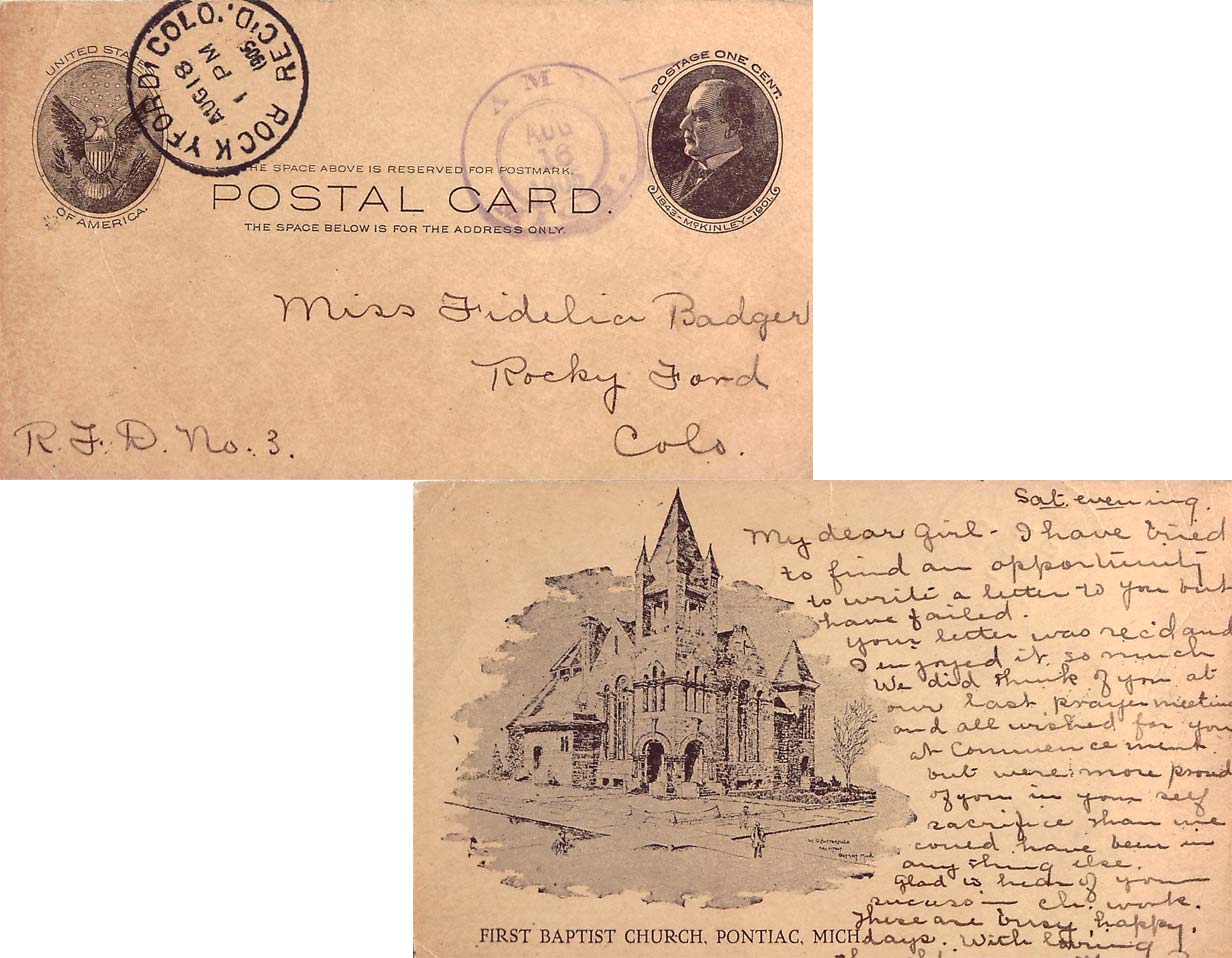 UNITED STA
OF AMERICA.
ROCKYFORD, COLO.
REC'D.
AUG 18
1 PM
1905
A M
AUG
16
POSTAGE ONE CENT.
1843-McKINLEY-1901
THE SPACE ABOVE IS RESERVED FOR POSTMARK.
POSTAL CARD.
THE SPACE BELOW IS FOR THE ADDRESS ONLY.
Miss Fidelia Badger
Rocky Ford
Colo.
R.F.D. No. 3.
Sat. evening.
My dear Girl - I have tried
to find an opportunity
to write a letter to you but
have failed.
Your letter was rec'd and
I enjoyed it so much
We did think of you at
our last prayer meetin
and all wished for you
at Commencement
but were more proud
of you in your self
sacrifice than we
could have been in
any thing else.
Glad to hear of your
success in ch. work.
These are busy happy
days. With loving
FIRST BAPTIST CHURCH, PONTIAC, MICH.